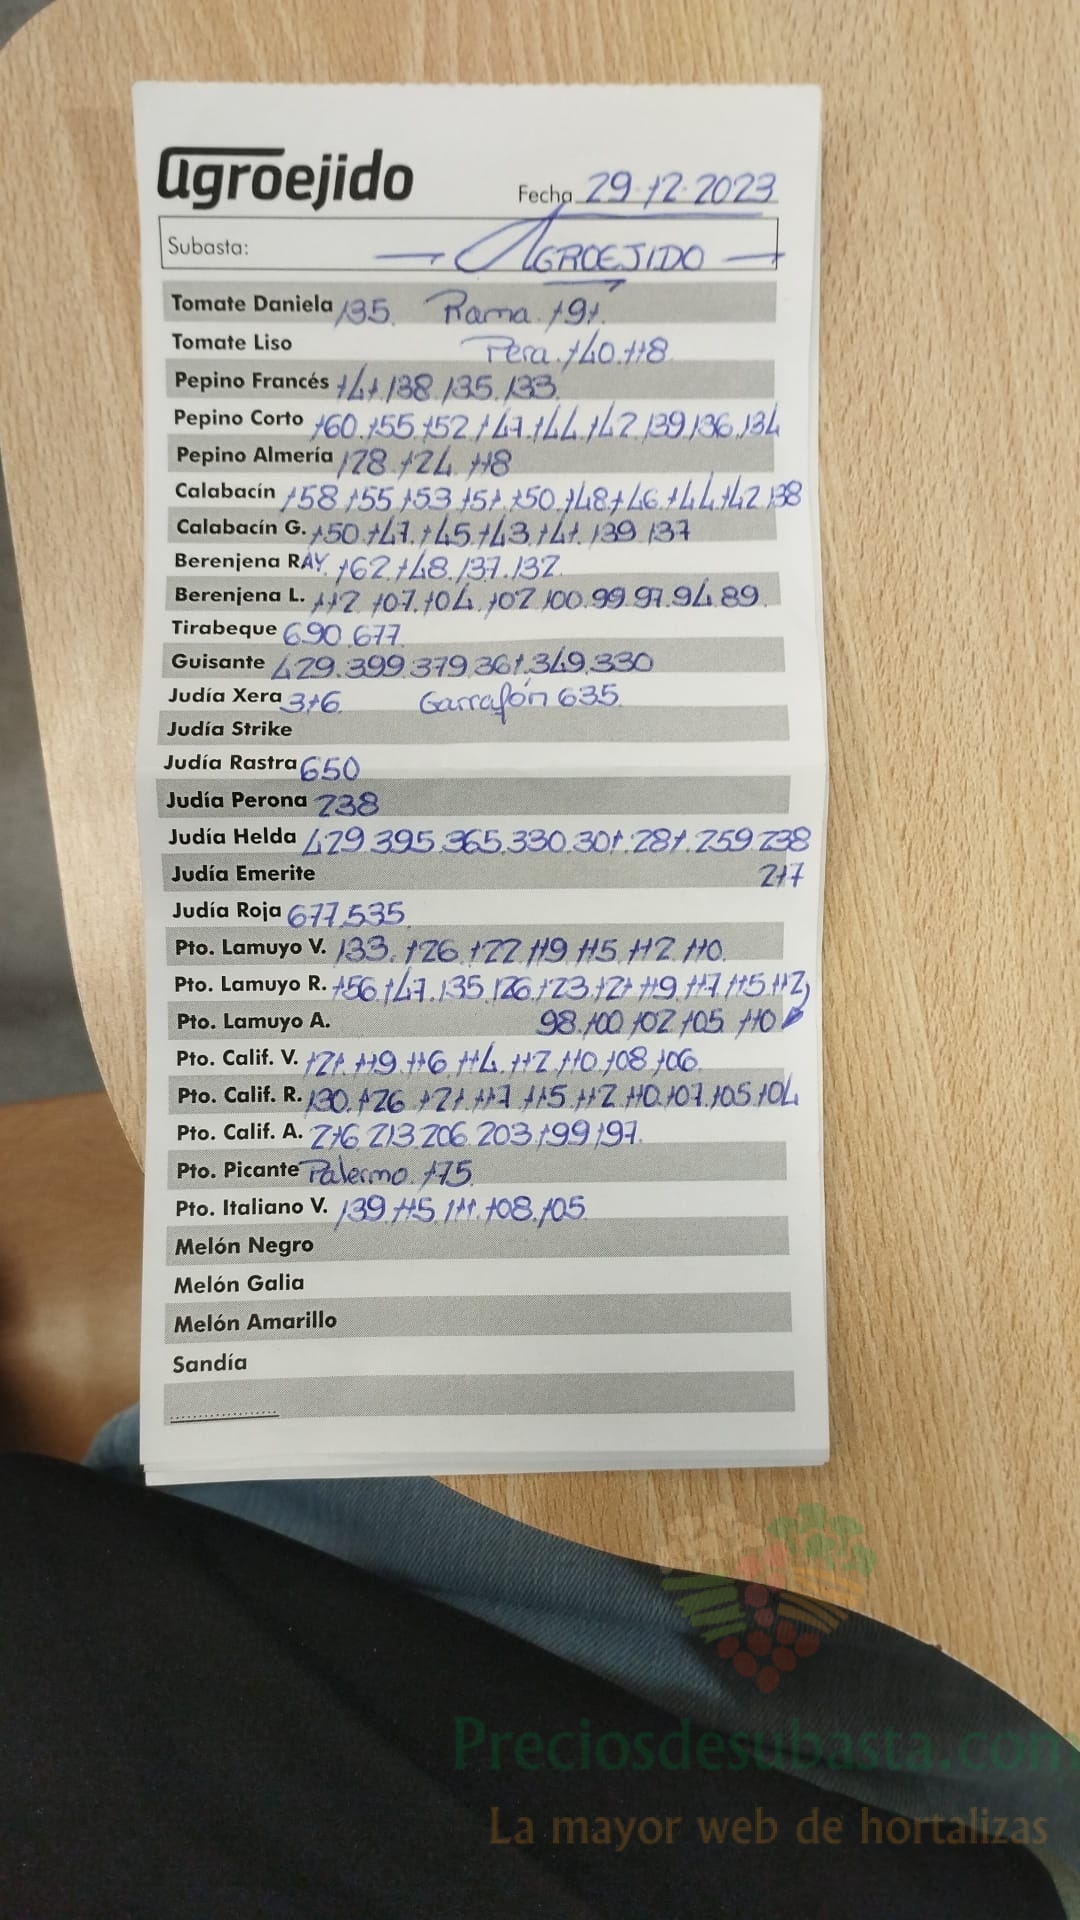 agroejido
Fecha 29-12-2023
Subasta: AGROEJIDO
Tomate Daniela 135. Rama. 191.
Tomate Liso Pera. 140.118
Pepino Francés 141.138.135.133
Pepino Corto 160.155.152.147.144.142.139.136.134
Pepino Almería 128.124.118
Calabacín 158.155.153.151.150.148.146.144.142.138
Calabacín G. 150.147.145.143.141.139.137
Berenjena RAY. 162.148.137.132
Berenjena L. 112.107.104.102.100.99.97.94.89
Tirabeque 690.677
Guisante 429.399.379.361.349.330
Judía Xera 316. Garrafón 635
Judía Strike
Judía Rastra 650
Judía Perona 238
Judía Helda 429.395.365.330.301.281.259.238
Judía Emerite 217
Judía Roja 677.535
Pto. Lamuyo V. 133.126.122.119.115.112.110.
Pto. Lamuyo R. 156.147.135.126.123.121.119.117.115.112
Pto. Lamuyo A. 98.100.102.105.110
Pto. Calif. V. 121.119.116.114.112.110.108.106.
Pto. Calif. R. 130.126.121.117.115.112.110.107.105.104
Pto. Calif. A. 216.213.206.203.199.197.
Pto. Picante Palermo. 175.
Pto. Italiano V. 139.115.111.108.105
Melón Negro
Melón Galia
Melón Amarillo
Sandía
Preciosdesubasta.com
La mayor web de hortalizas